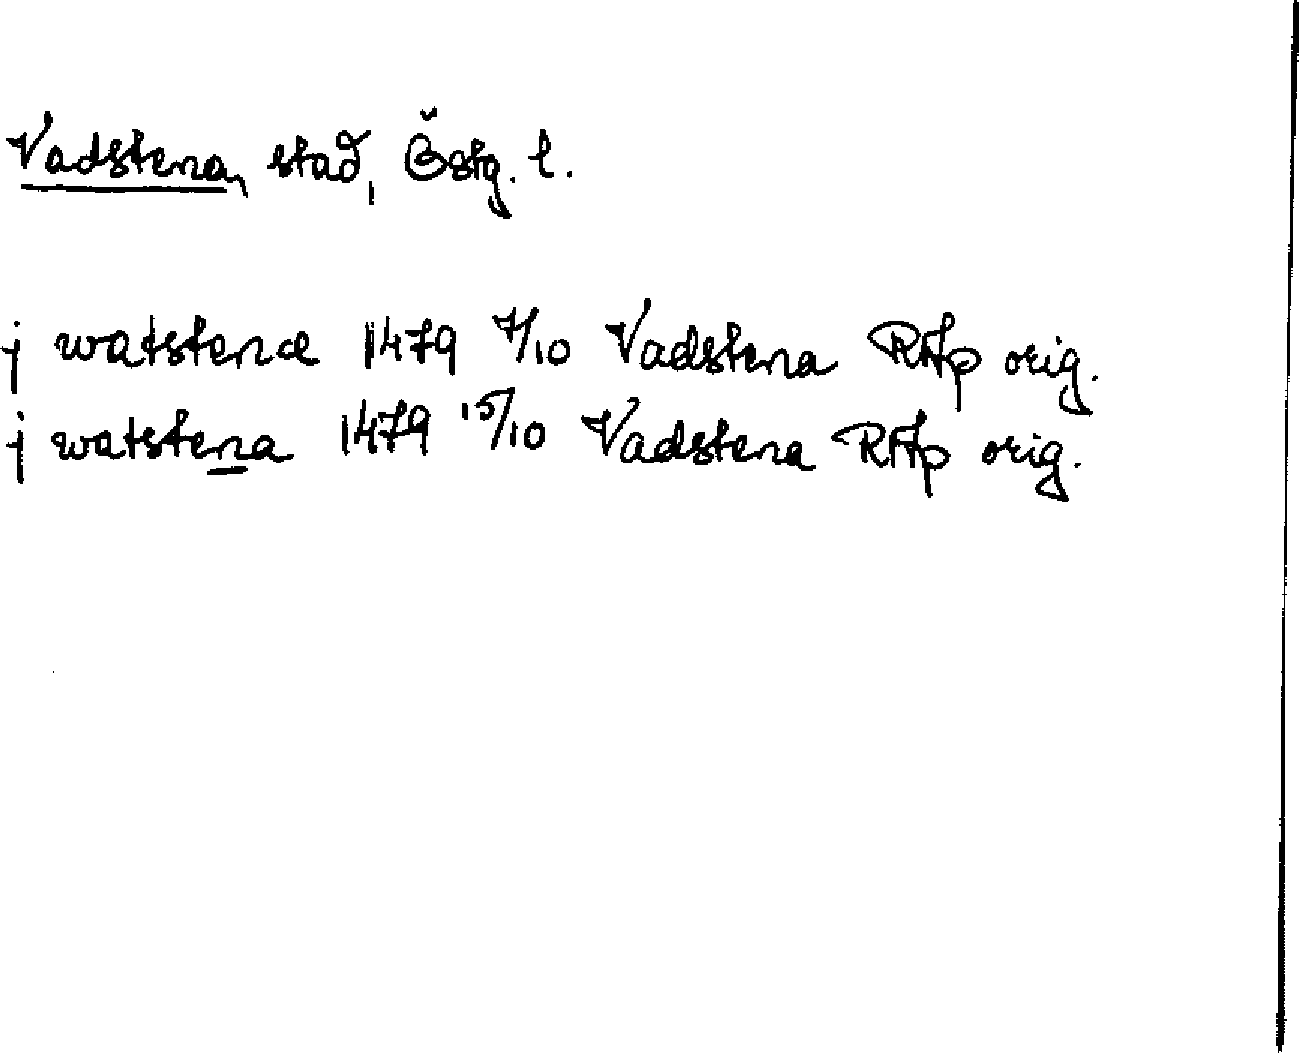 Vadstena, stad, Östg. l.
j watstenæ 1479 7/10 Vadstena RAp orig.
j watstena 1479 15/10 Vadstena RAp orig.